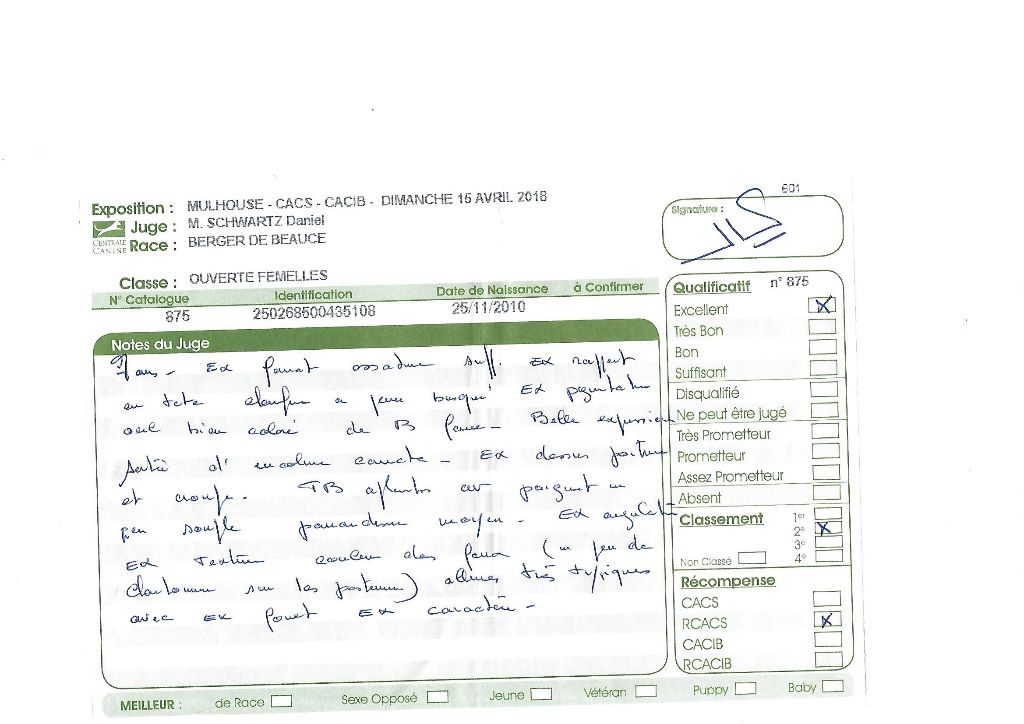 601
Exposition : MULHOUSE - CACS - CACIB - DIMANCHE 15 AVRIL 2018
Juge : M. SCHWARTZ Daniel
CENTRALE CANINE
Race : BERGER DE BEAUCE
Signature :
Classe : OUVERTE FEMELLES
N° Catalogue Identification Date de Naissance à Confirmer
875 250268500435108 25/11/2010
Notes du Juge
7 ans - Ex format ossature suff. Ex rapport
en tete chanfrein a peine busqué Ex pigmentation
oeil bien coloré de B forme - Belle expression
Sortie d'encolure correcte - Ex dessus poitrine
et croupe. TB aplombs av poignet un
peu souple panard moyen - Ex angulati
Ex texture couleur des feux (un peu de
sur les posterieurs) allures très typiques
avec Ex fouet Ex caractère -
Qualificatif n° 875
Excellent X
Très Bon
Bon
Suffisant
Disqualifié
Ne peut être jugé
Très Prometteur
Prometteur
Assez Prometteur
Absent
Classement 1er
2e X
3e
Non Classé 4e
Récompense
CACS
RCACS X
CACIB
RCACIB
MEILLEUR : de Race Sexe Opposé Jeune Vétéran Puppy Baby